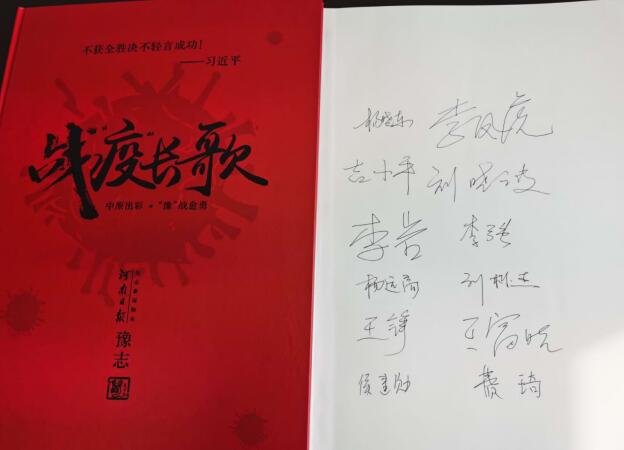 不获全胜决不轻言成功!
——习近平
战“疫”长歌
中原出彩·“豫”战愈勇
河南日报
豫志
杨晓东 李凤虎
吉小平 刘晓波
李若 李强
杨远高 刘
王铮 王富晓
侯建勋 龚琦